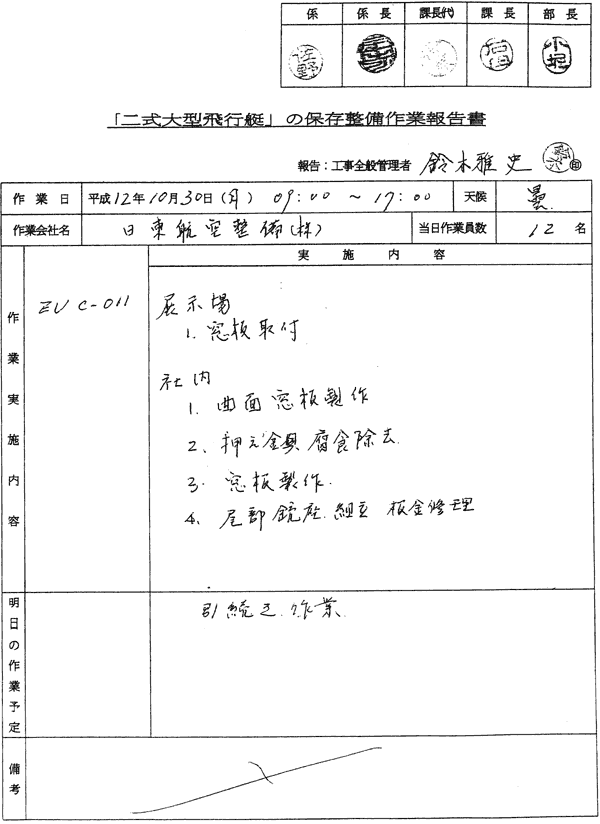 係 係長 課長(代) 課長 部長
佐野
「二式大型飛行艇」の保存整備作業報告書
報告:工事全般管理者 鈴木雅史 印
作業日 平成12年10月30日(月) 09:00 ~ 17:00 天候 曇
作業会社名 日東航空整備(株) 当日作業員数 12 名
作業実施内容
実施内容
EU C-011
展示場
1. 窓板取付
社内
1. 曲面窓板製作
2、押え金具腐食除去.
3. 窓板製作.
4、尾部銃座.組立 板金修理
明日の作業予定
引続き.作業.
備考